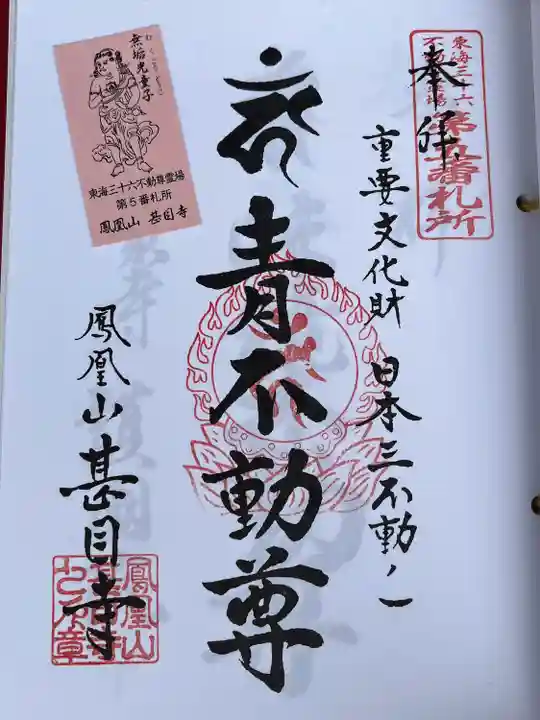 東海三十六
不動霊場
第五番札所
奉拝
重要文化財 日本三不動ノ一
青不動尊
鳳凰山甚目寺
無垢光童子
むくこうどうじ
東海三十六不動尊霊場
第5番札所
鳳凰山 甚目寺
鳳凰山
甚目寺
之印章